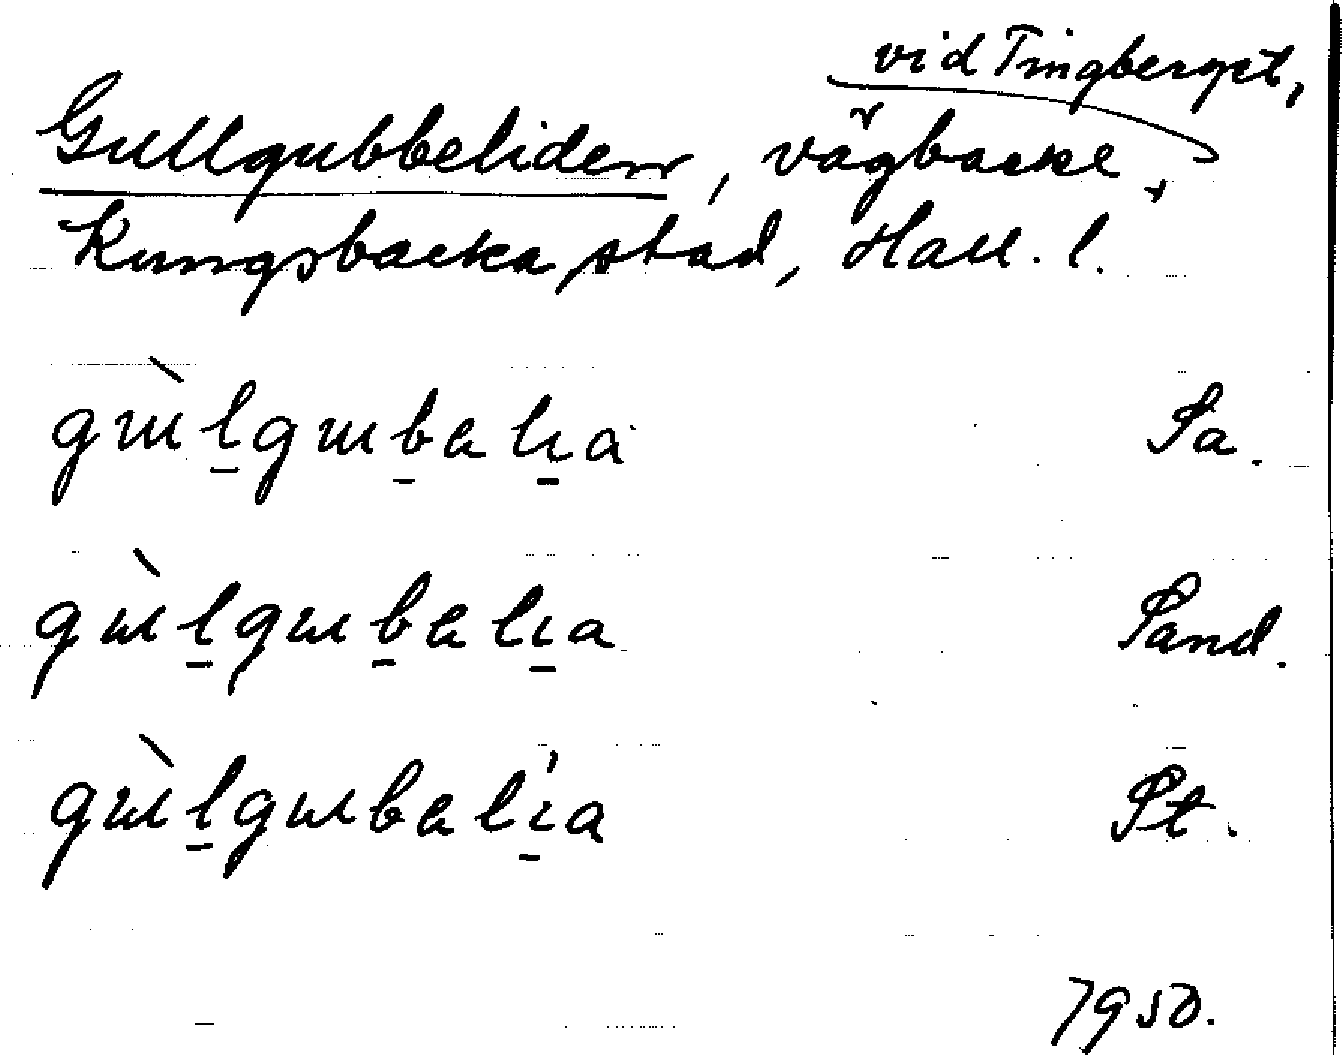 vid Tingberget,
Gullgubbeliden, vägbacke,
Kungsbacka stad, Hall. l.
gɯ̀lgɯbalıa Sa.
gɯ̀lgɯbalıa Sand.
gɯ̀lgɯbalı́a St.
1950.